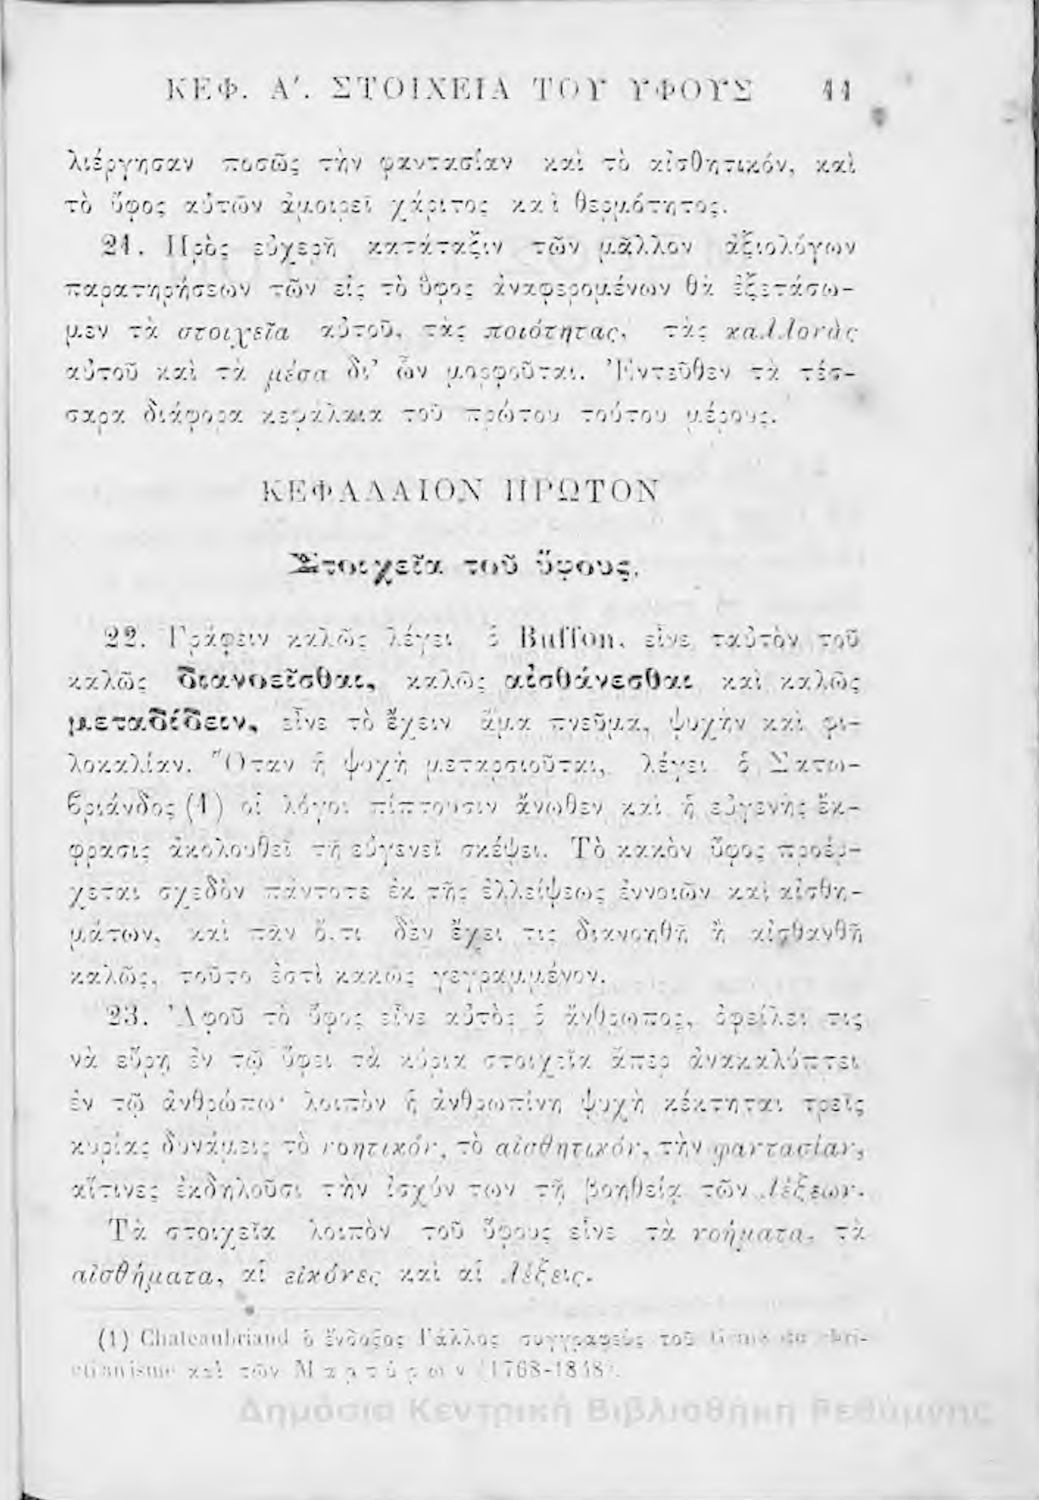 ΚΕΦ. Α΄. ΣΤΟΙΧΕΙΑ ΤΟΥ ΥΦΟΥΣ 11
λιέργησαν ποσῶς τὴν φαντασίαν καὶ τὸ αἰσθητικόν, καὶ
τὸ ὕφος αὐτῶν ἀμοιρεῖ χάριτος καὶ θερμότητος.
21. Πρὸς εὐχερῆ κατάταξιν τῶν μᾶλλον ἀξιολόγων
παρατηρήσεων τῶν εἰς τὸ ὕφος ἀναφερομένων θὰ ἐξετάσω-
μεν τὰ στοιχεῖα αὐτοῦ, τὰς ποιότητας, τὰς καλλονὰς
αὐτοῦ καὶ τὰ μέσα δι' ὧν μορφοῦται. Ἐντεῦθεν τὰ τέσ-
σαρα διάφορα κεφάλαια τοῦ πρώτου τούτου μέρους.
ΚΕΦΑΛΑΙΟΝ ΠΡΩΤΟΝ
Στοιχεῖα τοῦ ὕφους.
22. Γράφειν καλῶς λέγει ὁ Buffon, εἶνε ταὐτὸν τοῦ
καλῶς διανοεῖσθαι, καλῶς αἰσθάνεσθαι καὶ καλῶς
μεταδίδειν, εἶνε τὸ ἔχειν ἅμα πνεῦμα, ψυχὴν καὶ φι-
λοκαλίαν. Ὅταν ἡ ψυχὴ μεταρσιοῦται, λέγει ὁ Σατω-
βριάνδος (1) οἱ λόγοι πίπτουσιν ἄνωθεν καὶ ἡ εὐγενὴς ἔκ-
φρασις ἀκολουθεῖ τῇ εὐγενεῖ σκέψει. Τὸ κακὸν ὕφος προέρ-
χεται σχεδὸν πάντοτε ἐκ τῆς ἐλλείψεως ἐννοιῶν καὶ αἰσθη-
μάτων, καὶ πᾶν ὅ,τι δὲν ἔχει τις διανοηθῆ ἢ αἰσθανθῆ
καλῶς, τοῦτο ἐστὶ κακῶς γεγραμμένον.
23. Ἀφοῦ τὸ ὕφος εἶνε αὐτὸς ὁ ἄνθρωπος, ὀφείλει τις
νὰ εὕρῃ ἐν τῷ ὕφει τὰ κύρια στοιχεῖα ἅπερ ἀνακαλύπτει
ἐν τῷ ἀνθρώπῳ· λοιπὸν ἡ ἀνθρωπίνη ψυχὴ κέκτηται τρεῖς
κυρίας δυνάμεις τὸ νοητικόν, τὸ αἰσθητικόν, τὴν φαντασίαν,
αἵτινες ἐκδηλοῦσι τὴν ἰσχύν των τῇ βοηθείᾳ τῶν λέξεων.
Τὰ στοιχεῖα λοιπὸν τοῦ ὕφους εἶνε τὰ νοήματα, τὰ
αἰσθήματα, αἱ εἰκόνες καὶ αἱ λέξεις.
(1) Chateaubriand ὁ ἔνδοξος Γάλλος συγγραφεὺς τοῦ Genie du chri-
stianisme καὶ τῶν Μαρτύρων (1768-1848).
Δημόσια Κεντρική Βιβλιοθήκη Ρεθύμνης